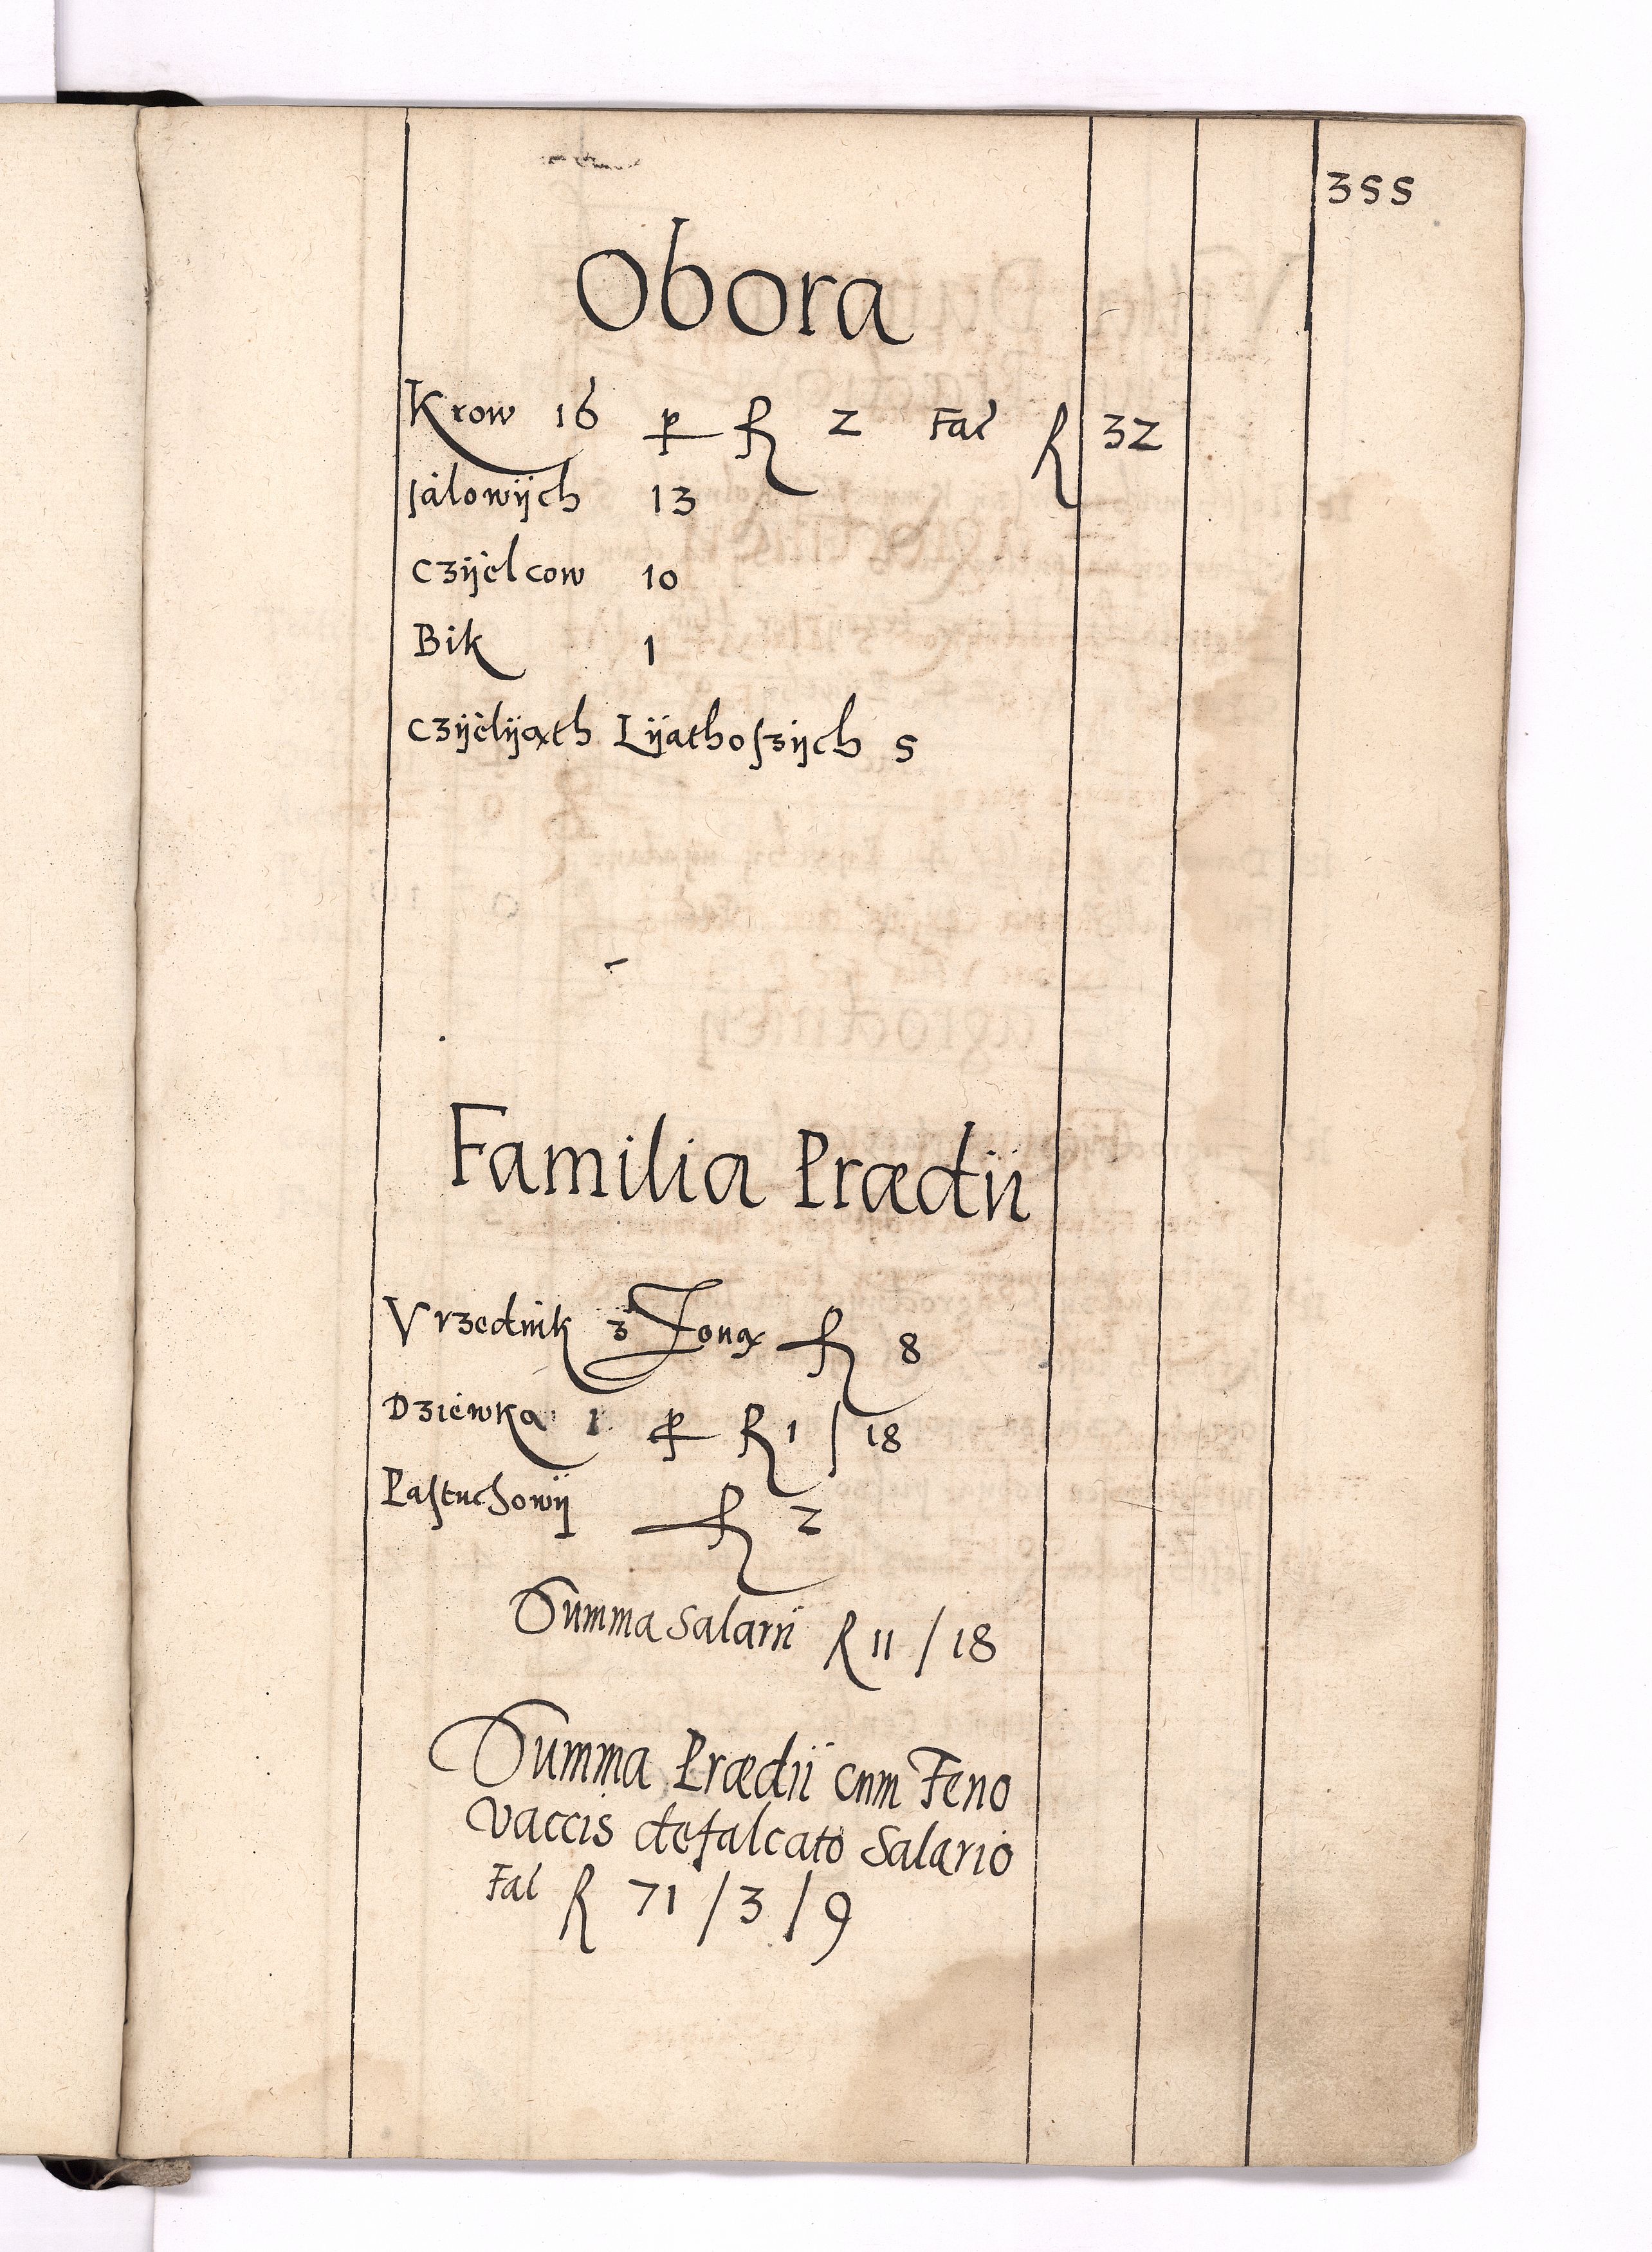 355
Obora
Krow 16 p fl 2 Fac fl 32
Jalowÿch 13
Czÿelcow 10
Bik 1
Czÿelÿąth Lÿathoſzÿch 5
Familia Prædii
Vrzednik z Zoną fl 8
Dziewka 1 p fl 1 / 18
Paſtuchowÿ fl 2
Summa Salarii fl 11 / 18
Summa Prædii cum Feno
vaccis defalcato Salario
Fac fl 71 / 3 / 9